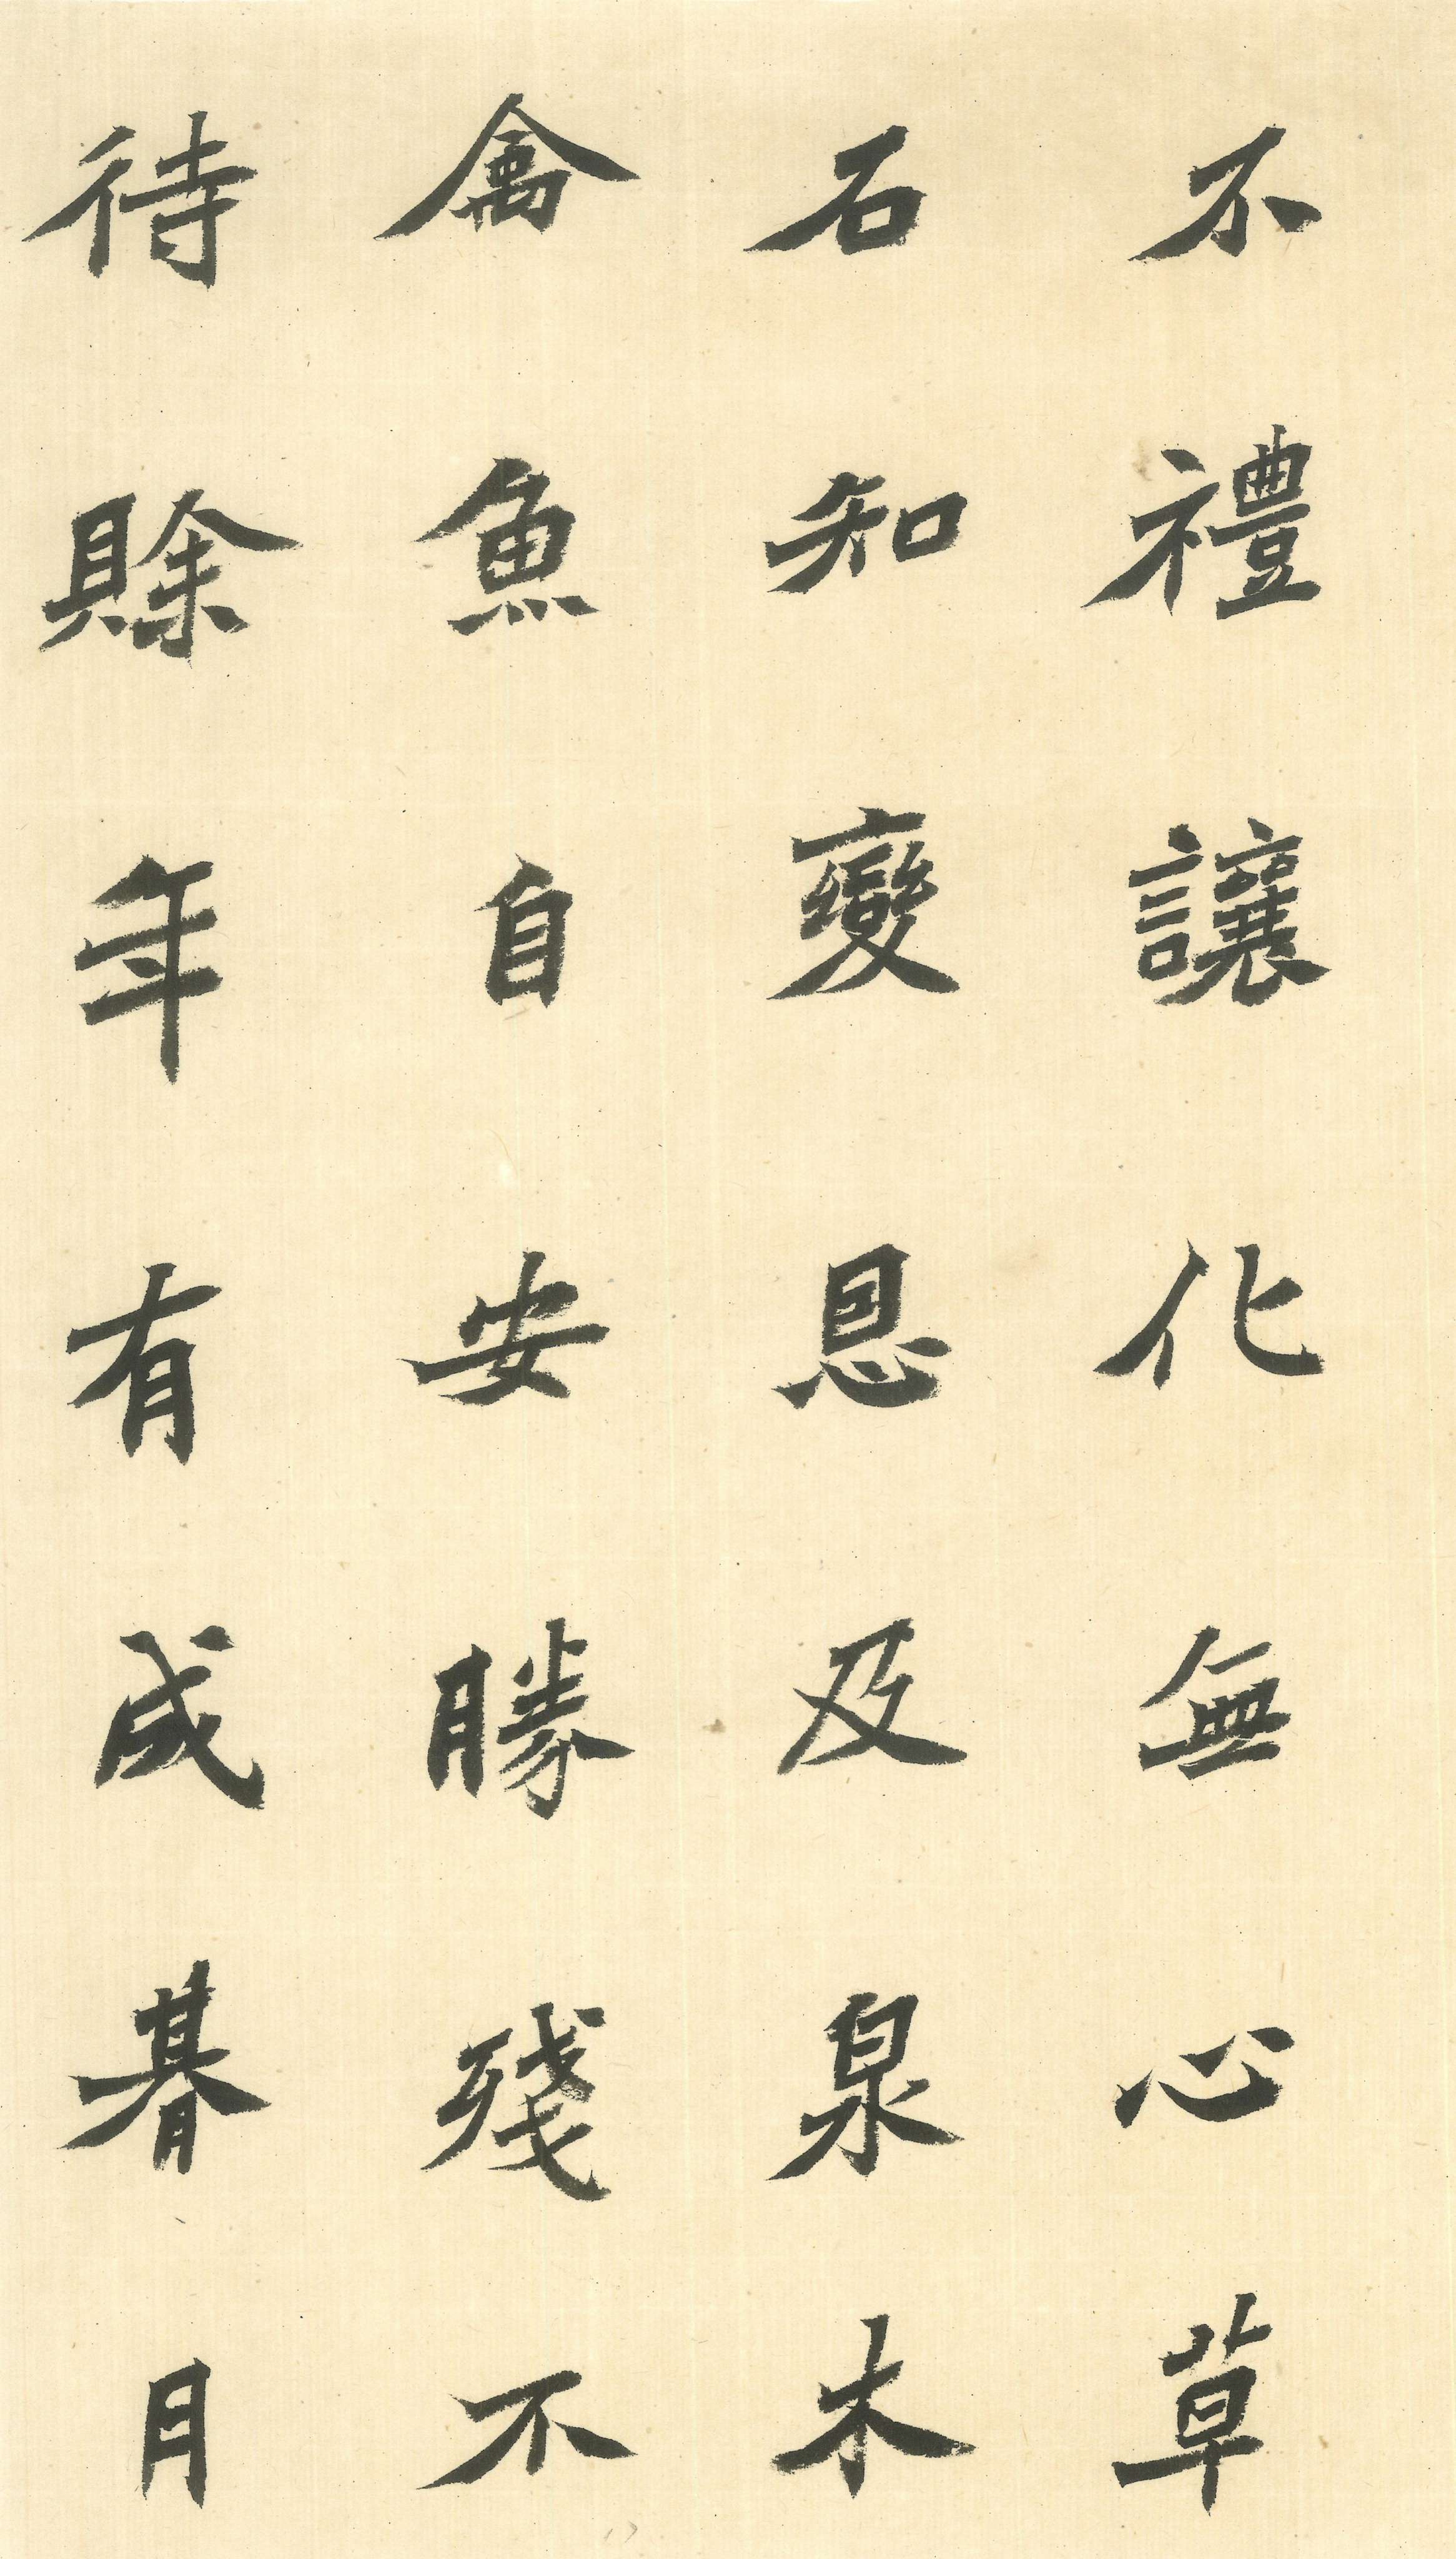 不禮讓化無心草
石知變恩及泉木
禽魚自安勝殘不
待賒年有成朞月